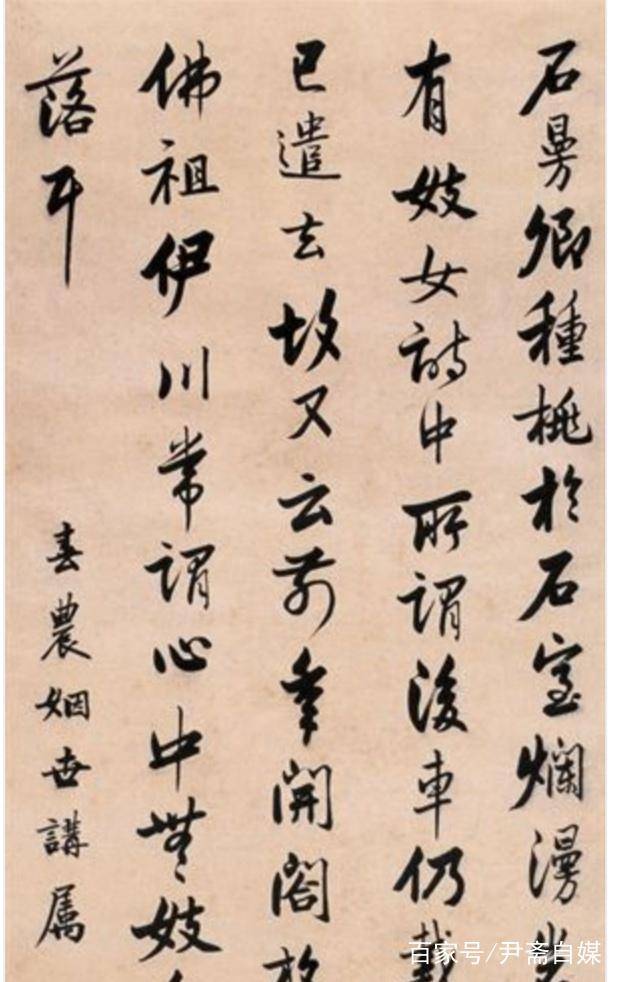 石曼卿種桃於石室爛漫
有妓女詩中所謂後車仍載
已遣去故又云前年開閤放
佛祖伊川常謂心中無妓
落耳
春農姻世講属
百家号/尹斋自媒